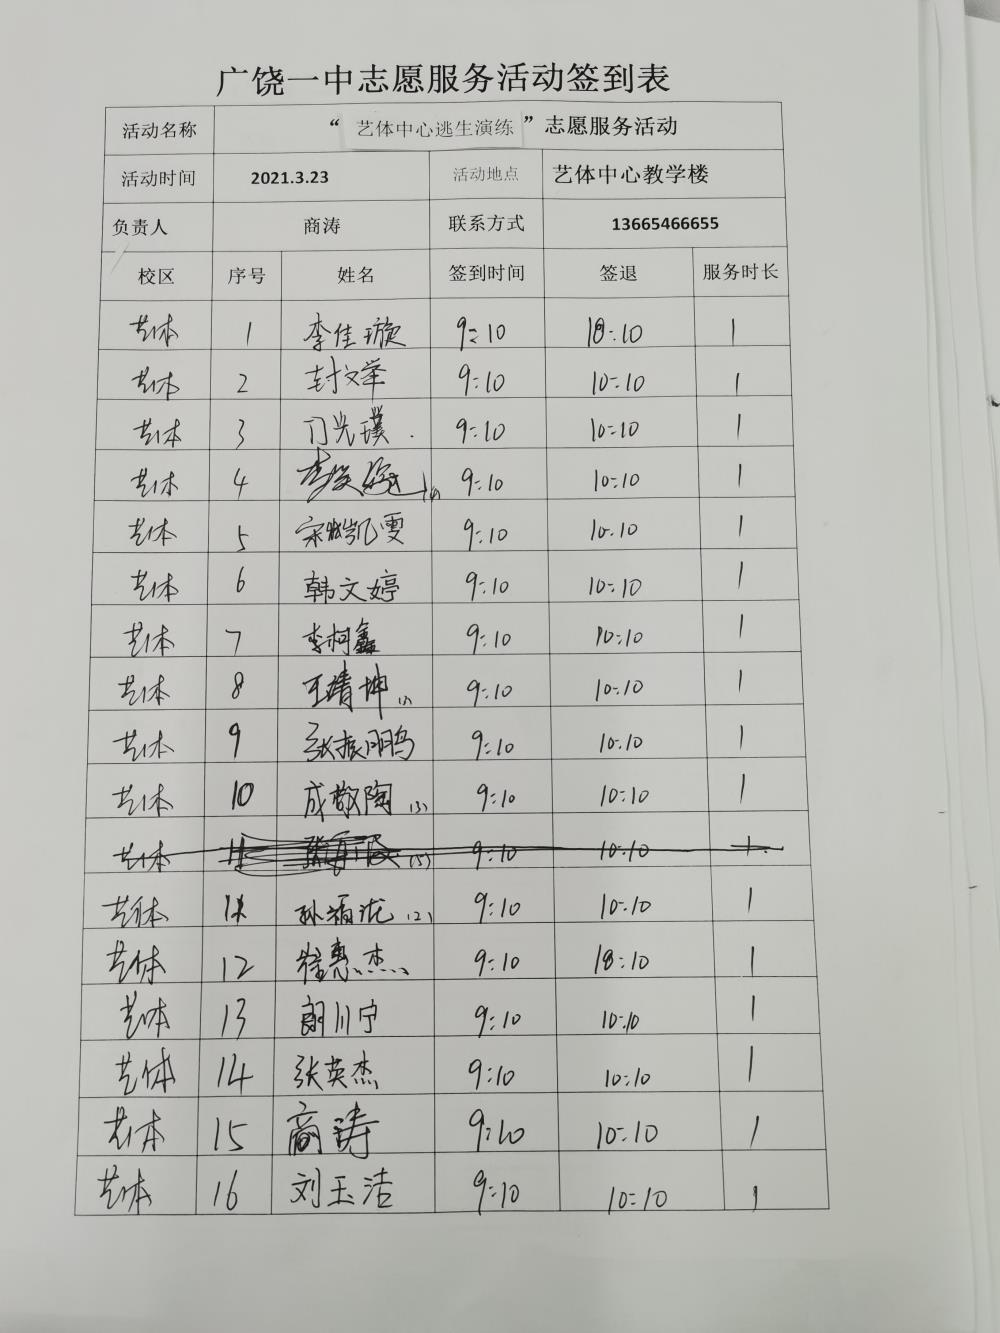 广饶一中志愿服务活动签到表
活动名称 “艺体中心逃生演练”志愿服务活动
活动时间 2021.3.23 活动地点 艺体中心教学楼
负责人 商涛 联系方式 13665466655
校区 序号 姓名 签到时间 签退 服务时长
艺体 1 李佳璇 9:10 10:10 1
艺体 2 封文举 9:10 10:10 1
艺体 3 门光璞 9:10 10:10 1
艺体 4 9:10 10:10 1
艺体 5 宋凯雯 9:10 10:10 1
艺体 6 韩文婷 9:10 10:10 1
艺体 7 李柯鑫 9:10 10:10 1
艺体 8 王靖坤 9:10 10:10 1
艺体 9 张振鹏 9:10 10:10 1
艺体 10 成敬陶 (3) 9:10 10:10 1
艺体 11 (5) 9:10 10:10 1
艺体 11 孙福龙 (2) 9:10 10:10 1
艺体 12 徐惠杰 9:10 10:10 1
艺体 13 川宁 9:10 10:10 1
艺体 14 张英杰 9:10 10:10 1
艺体 15 商涛 9:10 10:10 1
艺体 16 刘玉洁 9:10 10:10 1